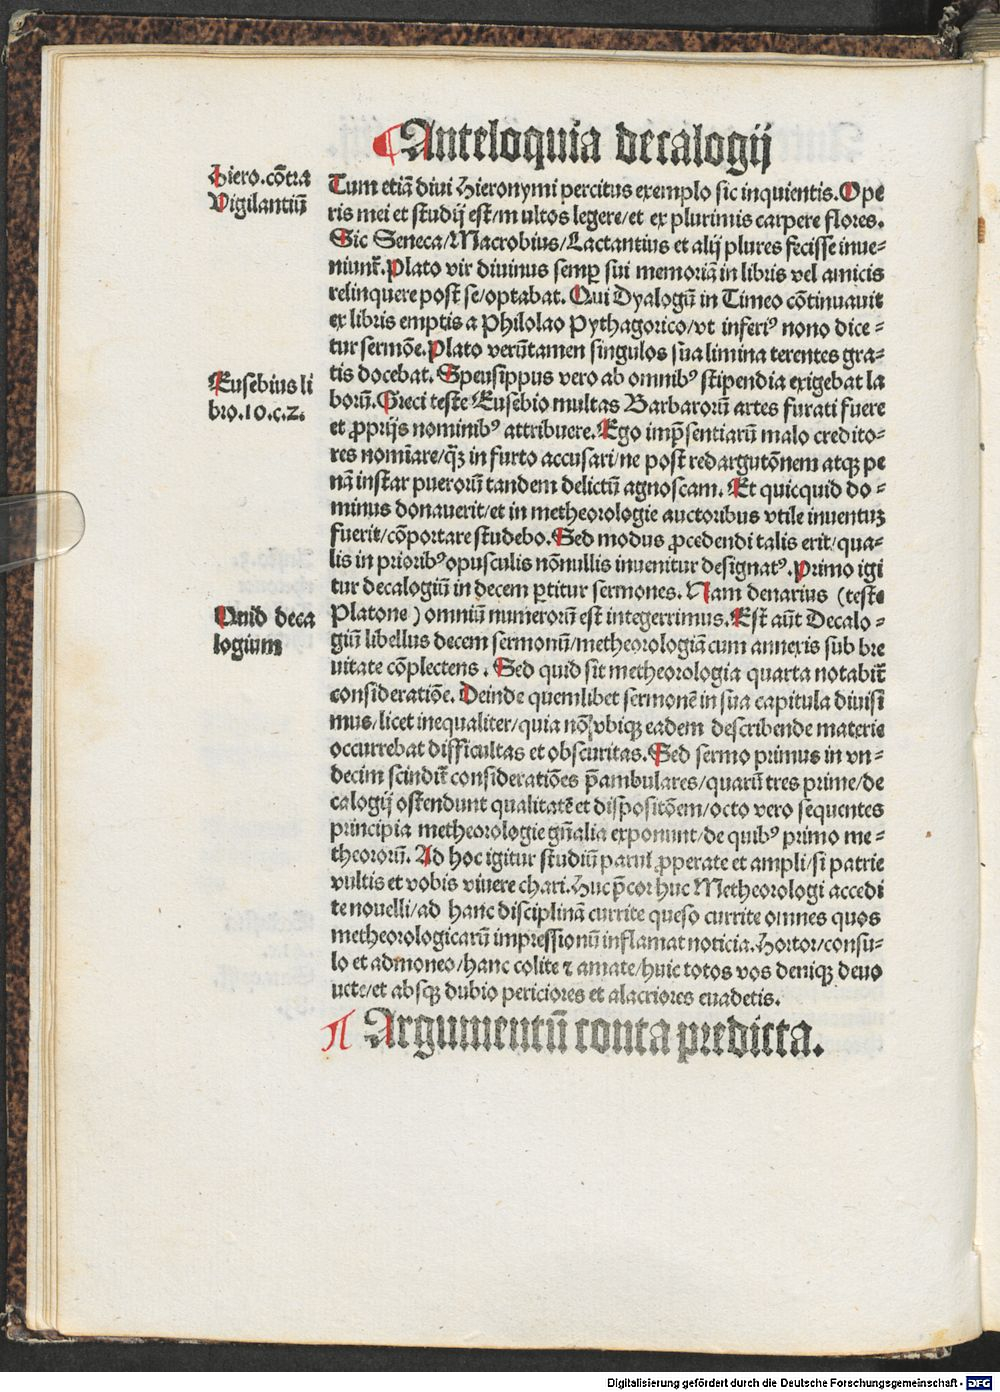 ¶ Anteloquia decalogij
Hiero.cõtra
Vigilantiũ
Tum etiã diui Hieronymi percitus exemplo sic inquientis. Ope
ris mei et studij est/m ultos legere/et ex plurimis carpere flores.
Sic Seneca/Macrobius/Lactantius et alij plures fecisse inue-
niunt᷑. Plato vir diuinus semꝑ sui memoriã in libris vel amicis
relinquere post se/optabat. Qui Dyalogũ in Timeo cõtinuauit
ex libris emptis a Philolao Pythagorico/vt inferiꝰ nono dice-
tur sermõe. Plato verũtamen singulos sua limina terentes gra-
tis docebat. Speusippus vero ab omnibꝰ stipendia exigebat la
Eusebius li
bro.10.c.2.
borũ. Greci teste Eusebio multas Barbarorũ artes furati fuere
et ꝓprijs nominibꝰ attribuere. Ego imp̃sentiarũ malo credito-
res nomĩare/q̃ꝫ in furto accusari/ne post redargutõnem atqꝫ pe
nã instar puerorũ tandem delictũ agnoscam. Et quicquid do-
minus donauerit/et in metheorologie auctoribus vtile inuentuꝫ
fuerit/cõportare studebo. Sed modus ꝓcedendi talis erit/qua-
lis in prioribꝰ opusculis nõnullis inuenitur designatꝰ. Primo igi
tur decalogiũ in decem ꝑtitur sermones. Nam denarius (teste
Quid deca
logium
Platone) omniũ numerorũ est integerrimus. Est aũt Decalo-
giũ libellus decem sermonũ/metheorologiã cum annexis sub bre
uitate cõplectens. Sed quid sit metheorologia quarta notabit᷑
consideratiõe. Deinde quemlibet sermonẽ in sua capitula diuisi
mus/licet inequaliter/quia nõ vbiqꝫ eadem describende materie
occurrebat difficultas et obscuritas. Sed sermo primus in vn-
decim scindit᷑ consideratiões p̃ambulares/quarũ tres prime/de
calogij ostendunt qualitatẽ et dispositõem/octo vero sequentes
principia metheorologie gñalia exponunt/de quibꝰ primo me-
theororũ. Ad hoc igitur studiũ paruĩ ꝓperate et ampli/si patrie
vultis et vobis viuere chari. Huc p̃cor huc Metheorologi accedi
te nouelli/ad hanc disciplinã currite queso currite omnes quos
metheorologicarũ impressionũ inflamat noticia. Hortor/consu-
lo et admoneo/hanc colite ⁊ amate/huic totos vos deniqꝫ deuo
uete/et absqꝫ dubio periciores et alacriores euadetis.
¶ Argumentũ conta predicta.
Digitalisierung gefördert durch die Deutsche Forschungsgemeinschaft - DFG